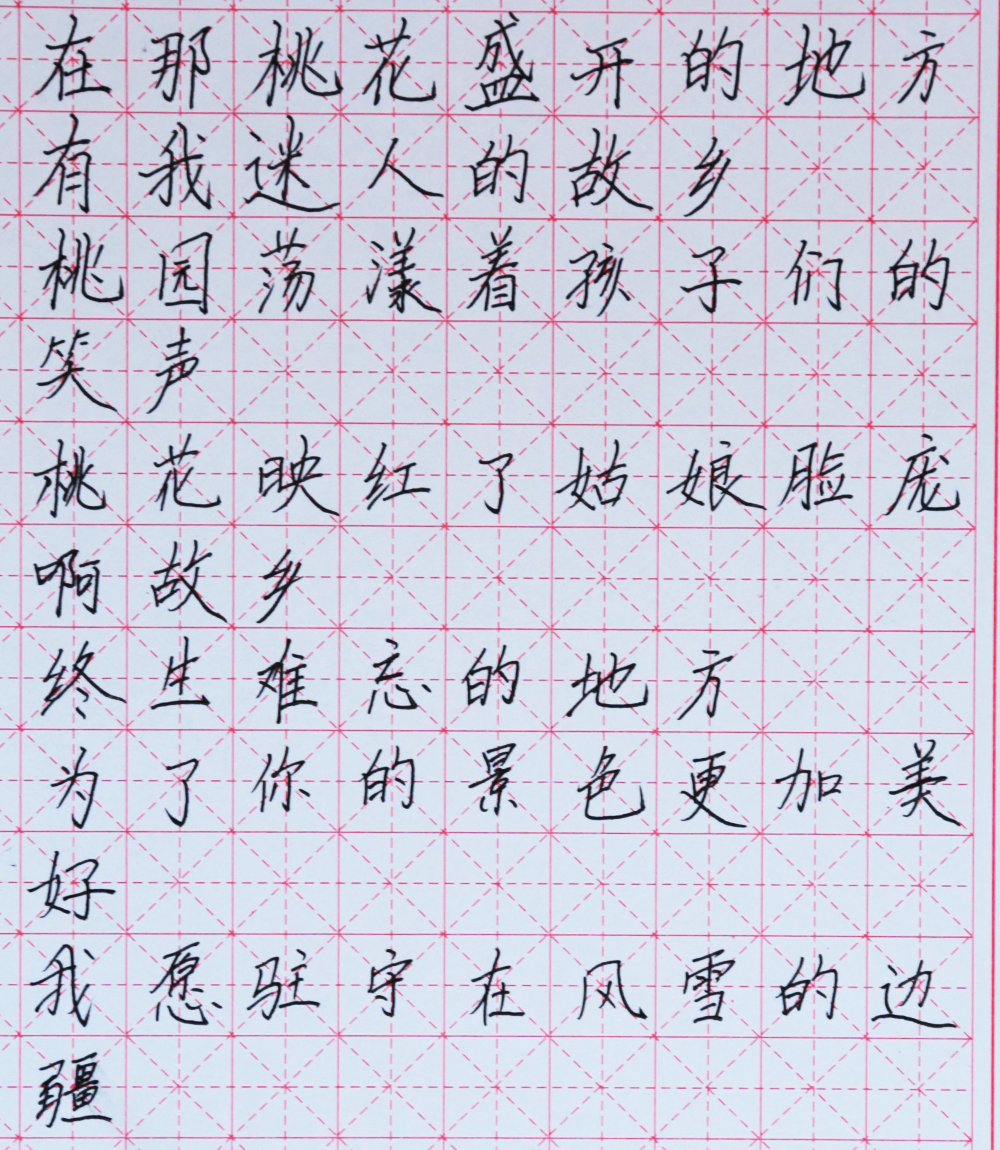 在那桃花盛开的地方
有我迷人的故乡
桃园荡漾着孩子们的
笑声
桃花映红了姑娘脸庞
啊故乡
终生难忘的地方
为了你的景色更加美
好
我愿驻守在风雪的边
疆